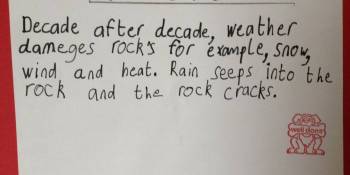 Decade after decade, weather
dameges rocks for example, snow,
wind and heat. Rain seeps into the
rock and the rock cracks.
well done